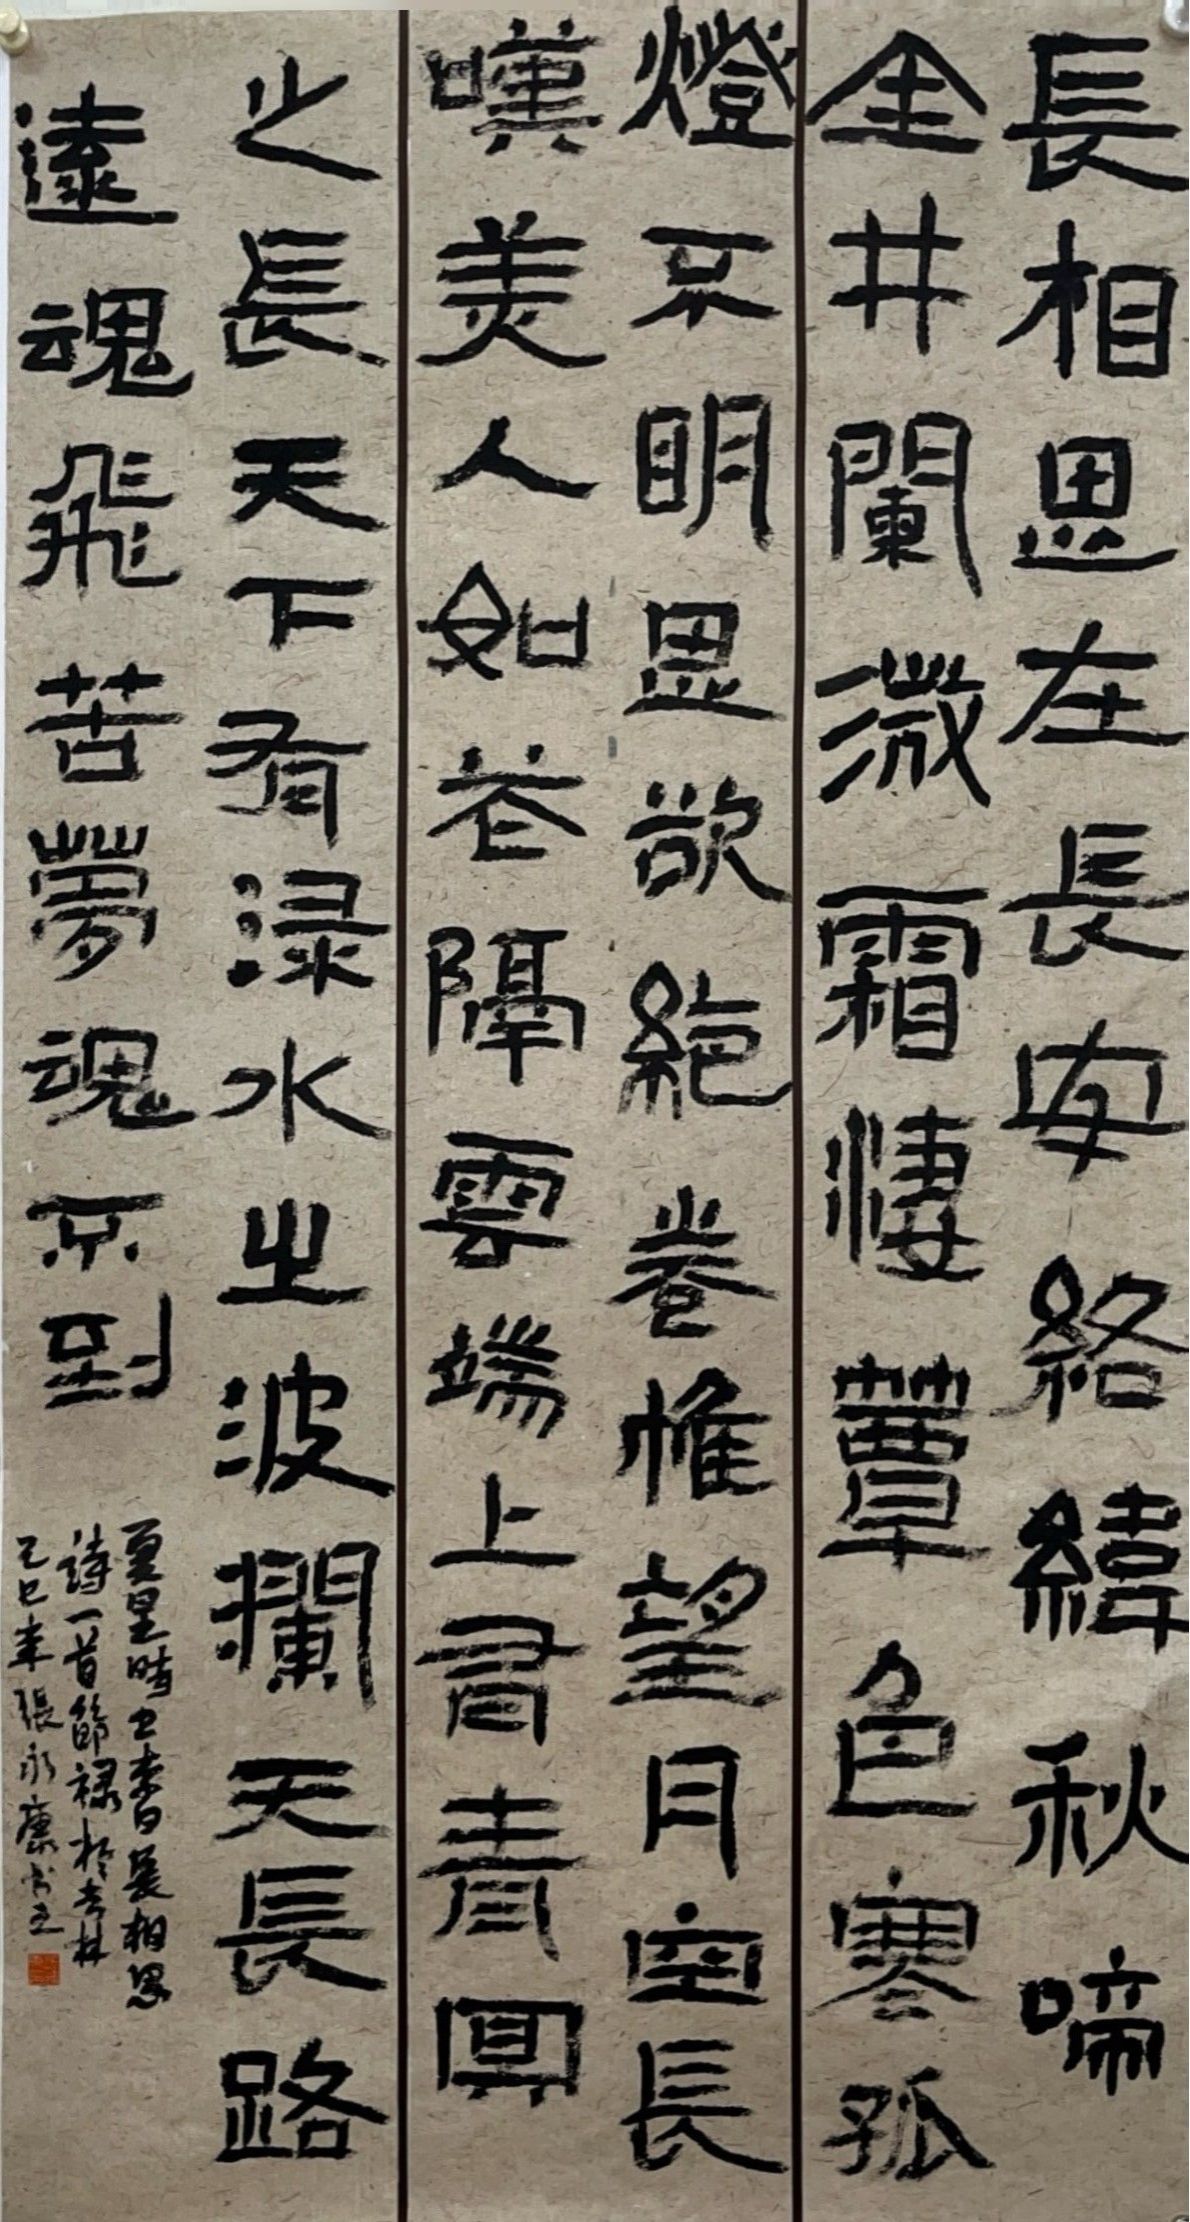 長相思在長安絡緯秋啼
金井闌微霜淒簟色寒孤
燈不明思欲絕卷帷望月空長
嘆美人如花隔雲端上有青冥
之長天下有淥水之波瀾天長路
遠魂飛苦夢魂不到
李白長相思
詩一首節祿於吉林
乙巳年張永康書之